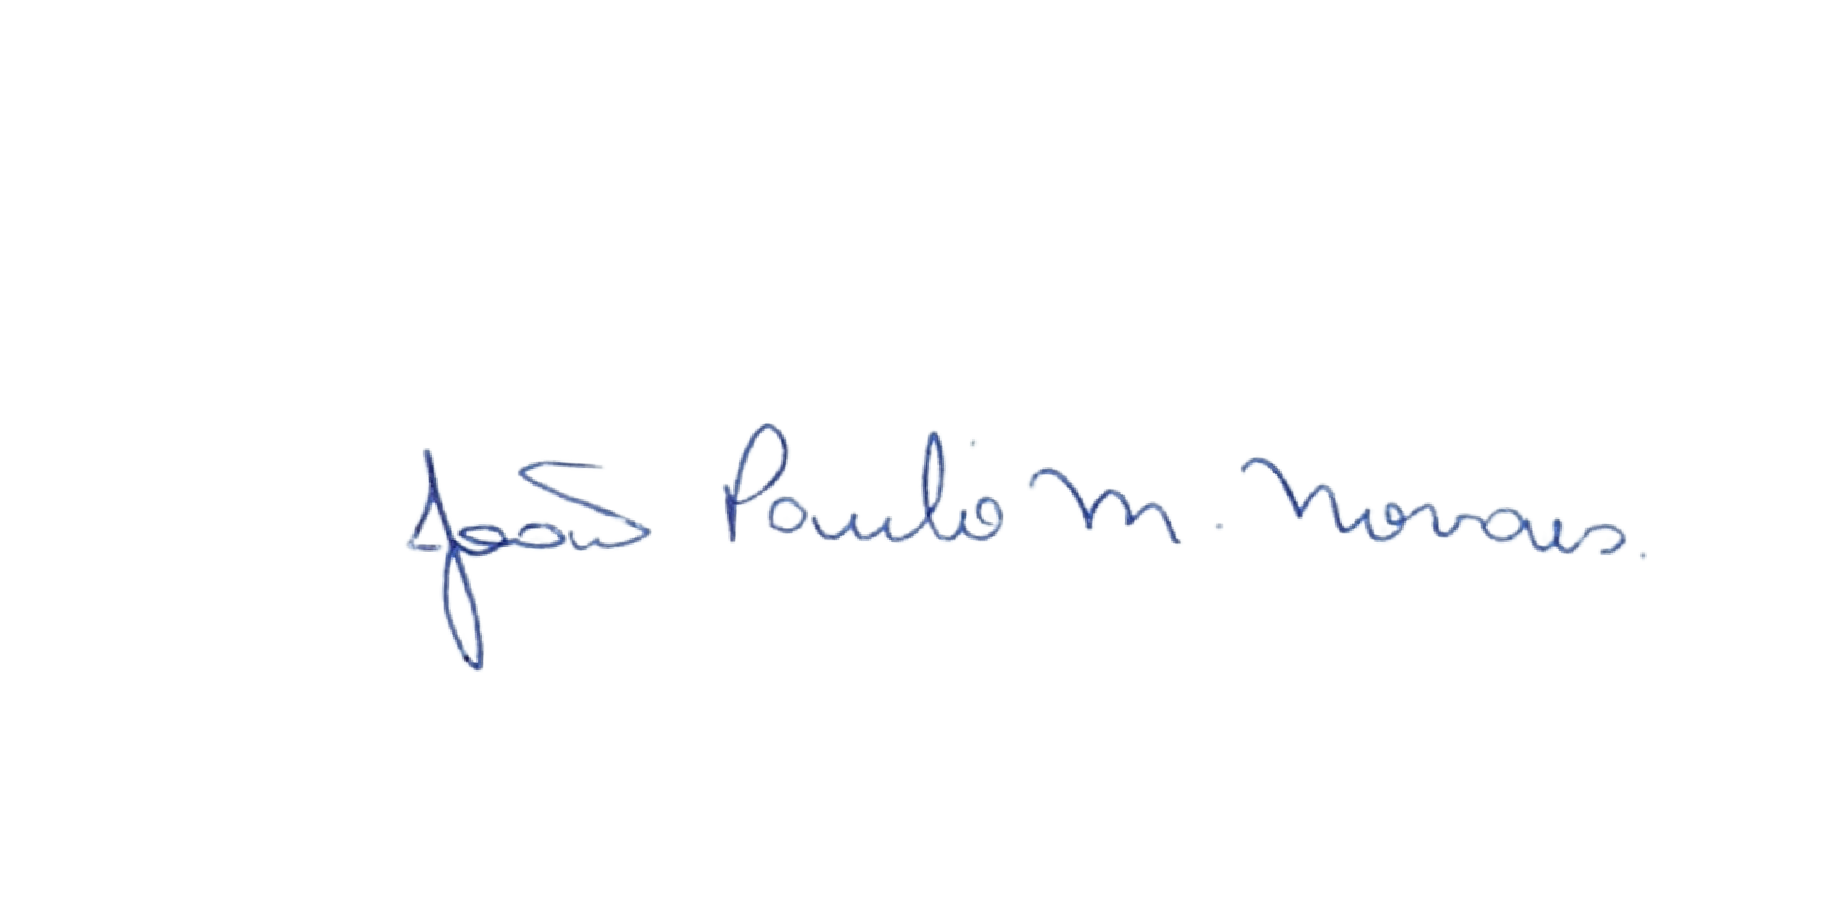 João Paulo M. Novais.